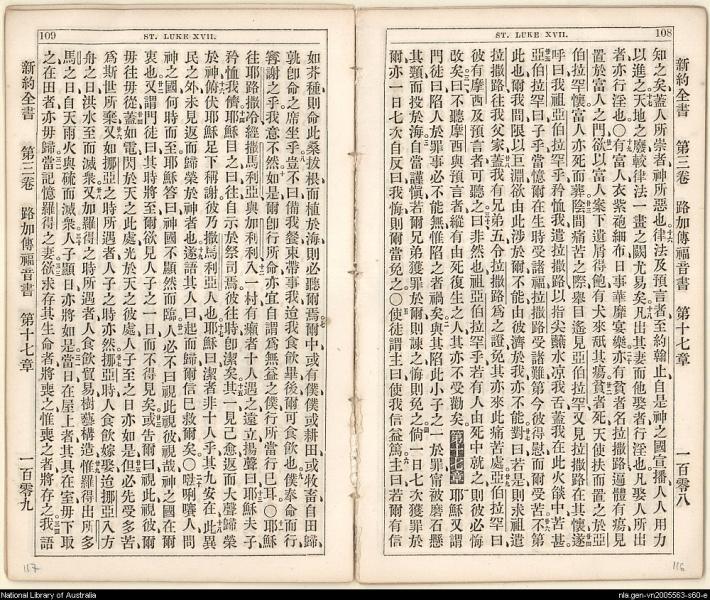 ST. LUKE XVII.
108
新約全書 第三卷 路加傳福音書 第十七章 一百零八
知之矣蓋人所崇者神所惡也律法及預言者至約翰止自是神之國宣播人人用力
以進之天地之廢較律法一畫之闕尤易矣凡出其妻而他娶者行淫也凡娶人所出
者亦行淫也○有富人衣紫袍細布日事華靡宴樂亦有貧者名拉撒路遍體有瘍見
置於富人之門欲以富人案下遺屑得飽有犬來舐其瘍貧者死天使扶而置之於亞
伯拉罕懷富人亦死而葬陰間痛苦之際舉目遙見亞伯拉罕又見拉撒路在其懷遂
呼曰我祖亞伯拉罕乎矜恤我遣拉撒路以指尖蘸水凉我舌蓋我在此火燄中苦甚
亞伯拉罕曰子乎當憶爾在生時受諸福拉撒路受諸難第今彼得慰而爾受苦不第
此也爾我間限以巨淵欲由此涉於爾不能由彼濟於我亦不能對曰若是則求祖遣
拉撒路往我父家蓋我有兄弟五令拉撒路爲之證免其亦來此痛苦處亞伯拉罕曰
彼有摩西及預言者可聽之曰非然也祖亞伯拉罕乎若有人由死中就之則彼必悔
改矣曰不聽摩西與預言者縱有由死復生之人其亦不受勸矣第十七章耶穌又謂
門徒曰陷人於罪事必不能無惟陷之者禍矣與其陷此小子之一於罪甯被磨石懸
其頸而投於海自當謹愼若爾兄弟獲罪於爾則諫之悔則免之倘一日七次獲罪於
爾亦一日七次自反曰我悔則爾當免之○使徒謂主曰使我信益篤主曰若爾有信
116
109
ST. LUKE XVII.
如芥種則命此桑拔根而植於海則必聽爾焉爾中或有僕或耕田或牧畜自田歸
孰卽命之席坐乎豈不曰備我餐束帶事我迨我食飲畢後爾可食飲也僕奉命而行
寧謝之乎我意不然如是爾卽行所命亦宜自謂爲無益之僕行所當行已耳○耶穌
往耶路撒冷經撒馬利亞與加利利入一村有癩者十人遇之遠立揚聲曰耶穌夫子
矜恤我儕耶穌目之曰往自示於祭司焉彼往時卽潔矣其一見己愈返而大聲歸榮
於神俯伏耶穌足下稱謝彼乃撒馬利亞人也耶穌曰潔者非十人乎其九安在此異
民之外未見返而歸榮於神者也遂語其人曰起而歸爾信已救爾矣○𠵽唎㘔人問
神之國何時而至耶穌答曰神國不顯然而臨人必不曰視此視彼視哉神之國在爾
衷也又謂門徒曰其時將至爾欲見人子之一日而不得見矣或告爾曰視此視彼爾
毋往毋從蓋如電閃於天之此處光於天之彼處人子至之日亦如是但必先受多苦
爲斯世所棄又如挪亞之時所遇者人子之時亦然挪亞時人食飲嫁娶迨挪亞入方
舟之日洪水至而滅衆又加羅得之時所遇者人食飲貿易樹藝構造惟羅得出所多
馬之日自天雨火與硫而滅衆人子顯日亦將如是當日在屋上者其具在室毋下取
之在田者亦毋歸當記憶羅得之妻欲求存其生命者將喪之惟喪之者將存之我語
新約全書 第三卷 路加傳福音書 第十七章 一百零九
117
National Library of Australia
nla.gen-vn2005563-s60-e